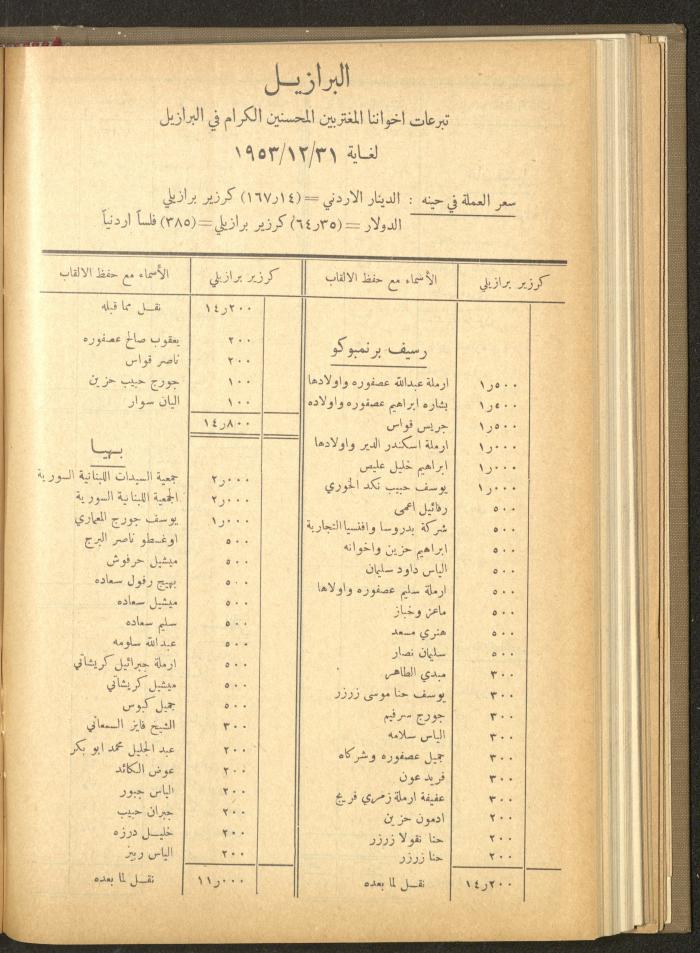 البرازيل
تبرعات اخواننا المغتربين المحسنين الكرام في البرازيل
لغاية ١٩٥٣/١٢/٣١
سعر العملة في حينه : الدينار الاردني = (١٦٧٫١٤) كرزير برازيلي
الدولار = (٦٤٫٣٥) كرزير برازيلي = (٣٨٥) فلساً اردنياً
كرزير برازيلي الأسماء مع حفظ الالقاب
رسيف برنمبوكو
١٫٥٠٠ ارملة عبدالله عصفوره واولادها
١٫٥٠٠ بشاره ابراهيم عصفوره واولاده
١٫٥٠٠ جريس قواس
١٫٠٠٠ ارملة اسكندر الدير واولادها
١٫٠٠٠ ابراهيم خليل عليص
١٫٠٠٠ يوسف حبيب نكد الخوري
٥٠٠ رفائيل اعمى
٥٠٠ شركة بدروسا وافنسيا التجارية
٥٠٠ ابراهيم حزين واخوانه
٥٠٠ الياس داود سليمان
٥٠٠ ارملة سليم عصفوره واولاها
٥٠٠ ماعز وخباز
٥٠٠ هنري مسعد
٥٠٠ سليمان نصار
٣٠٠ مبدي الطاهر
٣٠٠ يوسف حنا موسى زرزر
٣٠٠ جورج سرفيم
٣٠٠ الياس سلامه
٣٠٠ جميل عصفوره وشركاه
٣٠٠ فريد عون
٣٠٠ عفيفة ارملة زمري فريج
٢٠٠ ادمون حزين
٢٠٠ حنا نقولا زرزر
٢٠٠ حنا زرزر
١٤٫٢٠٠ نقل لما بعده
كرزير برازيلي الأسماء مع حفظ الالقاب
١٤٫٢٠٠ نقل مما قبله
٢٠٠ يعقوب صالح عصفوره
٢٠٠ ناصر قواس
١٠٠ جورج حبيب حزين
١٠٠ اليان سوار
١٤٫٨٠٠
بهيا
٢٫٠٠٠ جمعية السيدات اللبنانية السورية
٢٫٠٠٠ الجمعية اللبنانية السورية
١٫٠٠٠ يوسف جورج المعماري
٥٠٠ اوغسطو ناصر البرج
٥٠٠ ميشيل حرفوش
٥٠٠ بهيج رفول سعاده
٥٠٠ ميشيل سعاده
٥٠٠ سليم سعاده
٥٠٠ عبدالله سلومه
٥٠٠ ارملة جبرائيل كريشاتي
٥٠٠ ميشيل كريشاتي
٥٠٠ جميل كبوس
٣٠٠ الشيخ فايز السمعاني
٢٠٠ عبد الجليل محمد ابو بكر
٢٠٠ عوض الكائد
٢٠٠ الياس جبور
٢٠٠ جبران حبيب
٢٠٠ خليل درزه
٢٠٠ الياس ريز
١١٫٠٠٠ نقل لما بعده